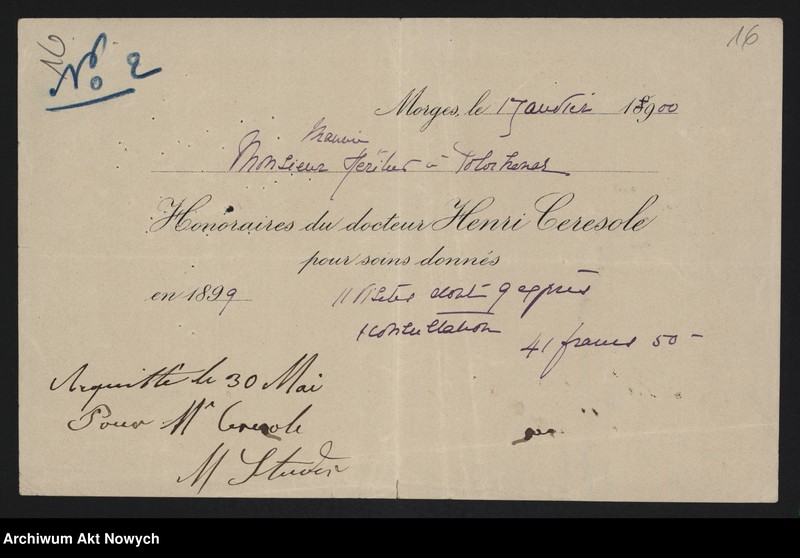 16
No 2
16
Morges, le 1 Janvier 1900
Monsieur à Tolochenaz
Honoraires du docteur Henri Ceresole
pour soins donnés
en 1899 11 visites dont 9 exprès
1 consultation
41 francs 50 -
Acquitté le 30 Mai
Pour Mr Ceresole
M Studer
Archiwum Akt Nowych